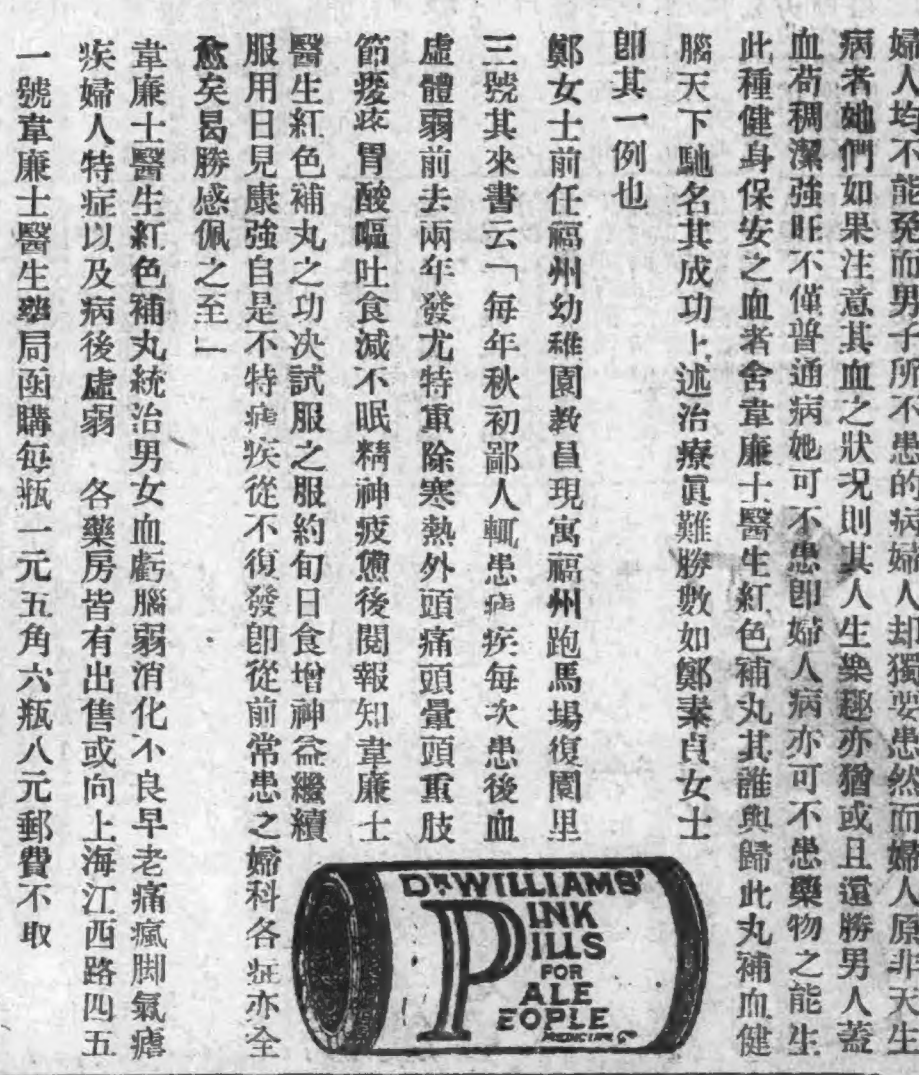 婦人均不能免而男子所不患的病婦人却獨要患然而婦人原非天生
病者她們如果注意其血之狀況則其人生樂趣亦猶或且還勝男人蓋
血苟稠潔強旺不僅普通病她可不患卽婦人病亦可不患藥物之能生
此種健身保安之血者舍韋廉士醫生紅色補丸其誰與歸此丸補血健
腦天下馳名其成功上述治療眞難勝數如鄭素貞女士
卽其一例也
鄭女士前任福州幼稚園教員現寓福州跑馬場復園里
三號其來書云「每年秋初鄙人輒患瘧疾每次患後血
虛體弱前去兩年發尤特重除寒熱外頭痛頭暈頭重肢
節痠疼胃酸嘔吐食減不眠精神疲憊後閱報知韋廉士
醫生紅色補丸之功决試服之服約旬日食增神益繼續
服用日見康強自是不特瘧疾從不復發卽從前常患之婦科各症亦全
愈矣曷勝感佩之至」
韋廉士醫生紅色補丸統治男女血虧腦弱消化不良早老痛瘋脚氣瘧
疾婦人特症以及病後虛弱 各藥房皆有出售或向上海江西路四五
一號韋廉士醫生藥局函購每瓶一元五角六瓶八元郵費不取
DR WILLIAMS'
PINK
PILLS
FOR
PALE
PEOPLE
MEDICINE Co